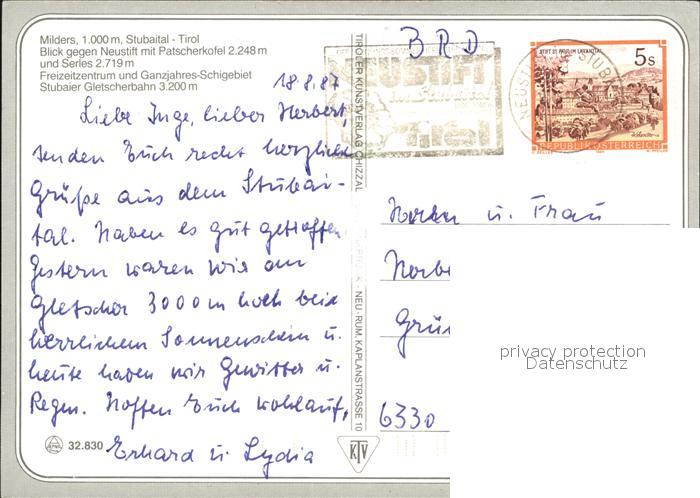 Milders, 1.000 m, Stubaital - Tirol
Blick gegen Neustift mit Patscherkofel 2.248 m
und Serles 2.719 m
Freizeitzentrum und Ganzjahres-Schigebiet
Stubaier Gletscherbahn 3.200 m
18.8.87
Liebe Inge, lieber Herbert,
senden Euch recht herzliche
Grüße aus dem Stubai-
tal. Haben es gut getroffen.
Gestern waren wir am
Gletscher 3000 m hoch bei
herrlichem Sonnenschein u.
heute haben wir Gewitter u.
Regen. Hoffen Euch wohlauf,
Erhard u. Lydia
32.830
TIROLER KUNSTVERLAG CHIZZALI
NEU-RUM, KAPLANSTRASSE 10
KTV
BRD
NEUSTIFT
im Stubaital
Tirol
NEUSTIFT STUB
STIFT ST. PAUL IM LAVANTTAL
5 S
REPUBLIK ÖSTERREICH
Herrn u. Frau
Herbe
Grün
6330
privacy protection
Datenschutz